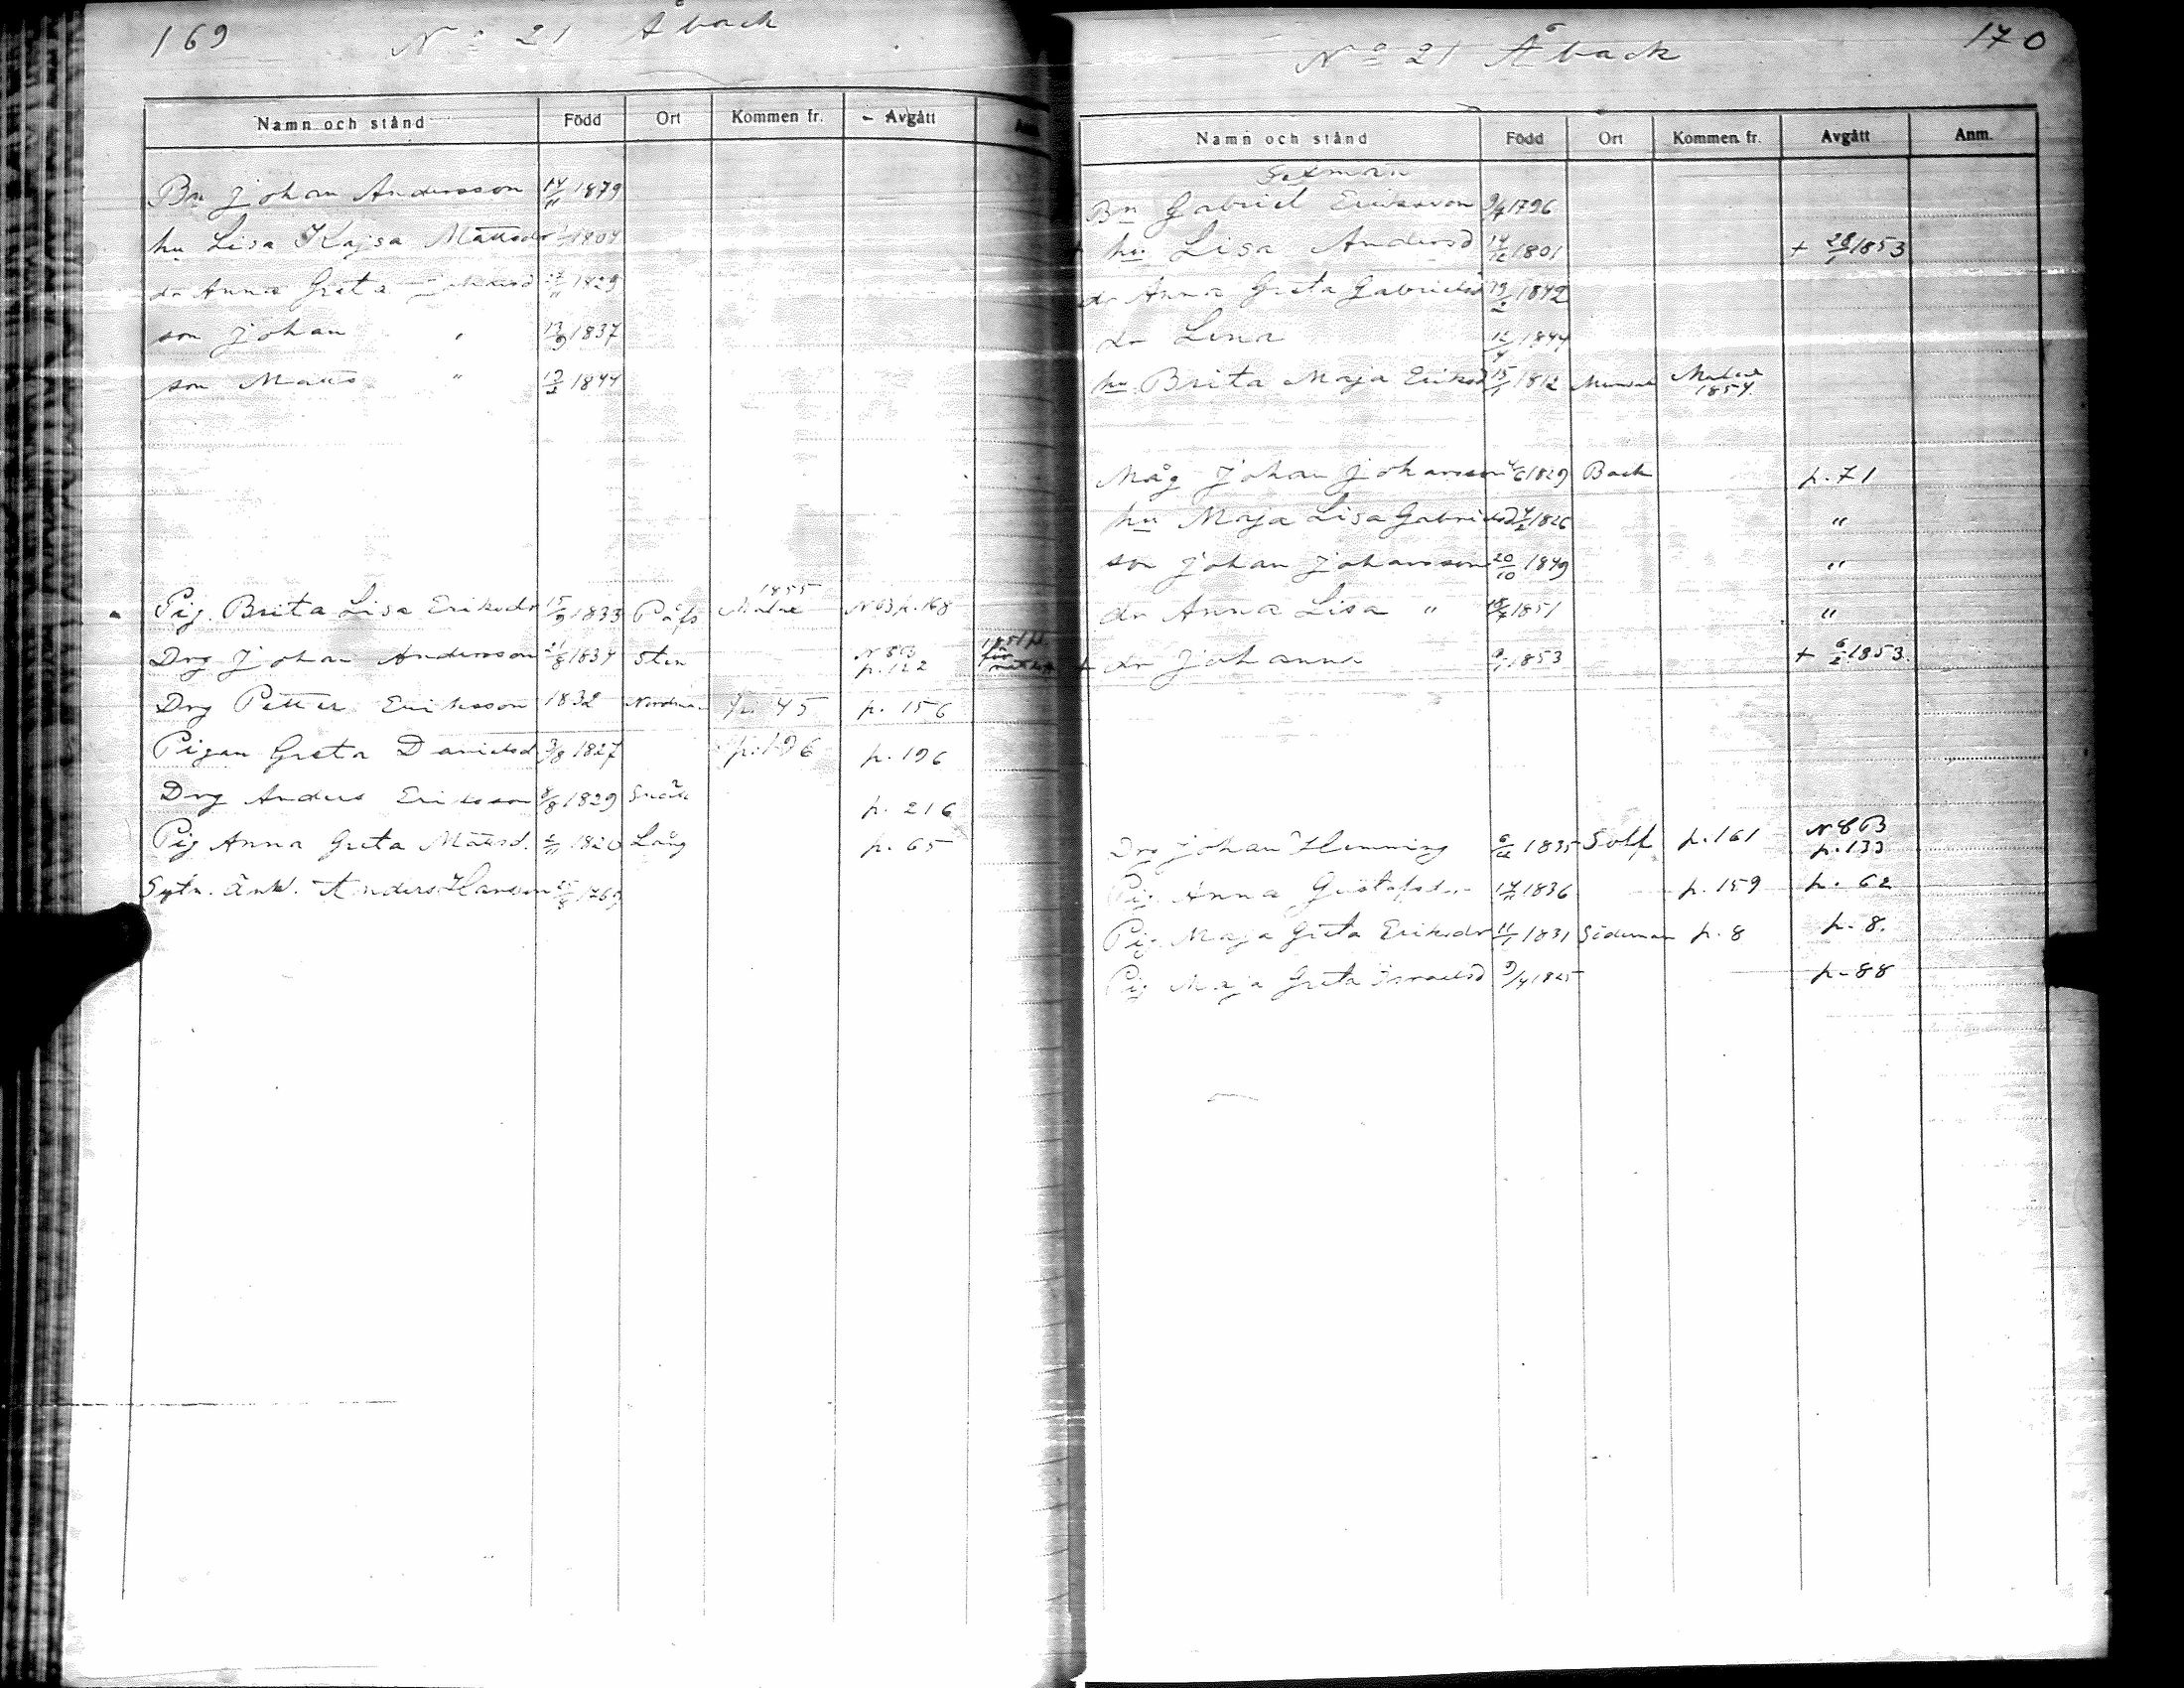 169 No 21 Åback
Namn och stånd Född Ort Kommen fr. Avgått Anm.
Bn Johan Andersson 14/11 1879
hu Lisa Kajsa Mattsdr 1804
dr Anna Greta 1829
son Johan " 13/9 1837
son Matts " 13/2 1844
1855
Pig. Brita Lisa Eriksdr 15/9 1833 Påfs Malax N B p. 168
Drg Johan Andersson 21/8 1834 Sten N 8 B p. 122
Drg Petter Eriksson 1832 Nordman p. 45 p. 156
Pigan Greta Danielsd 3/8 1827 p. 196 p. 196
Drg Anders Eriksson 8/8 1829 p. 216
Pig Anna Greta Mattsd. 1820 Lång p. 65
Sytn. änk. Anders Hansson 1769
170
No 21 Åback
Namn och stånd Född Ort Kommen fr. Avgått Anm.
Sexman
Bn Gabriel Eriksson 9/4 1796
hu Lisa Andersd 14/12 1801 + 28/1 1853
dr Anna Greta Gabrielsd 19/2 1842
dr Lena 12/4 1844
hu Brita Maja Eriksd 15/1 1812 Malax
1854.
Måg Johan Johansson 4/6 1829 Back p. 71
hu Maja Lisa Gabrielsd 4/2 1826 "
son Johan Johansson 20/10 1849 "
dr Anna Lisa " 18/4 1851 "
+ dr Johanna 9/1 1853 + 6/2 1853.
Drg Johan Flemming 6/12 1835 Solf p. 161 N 8 B p. 133
Pig Anna Gustafsdr 14/11 1836 p. 159 p. 62
Pig. Maja Greta Eriksdr 11/1 1831 Södeman p. 8 p. 8.
Pig Maja Greta Israelsd 9/4 1825 p. 88